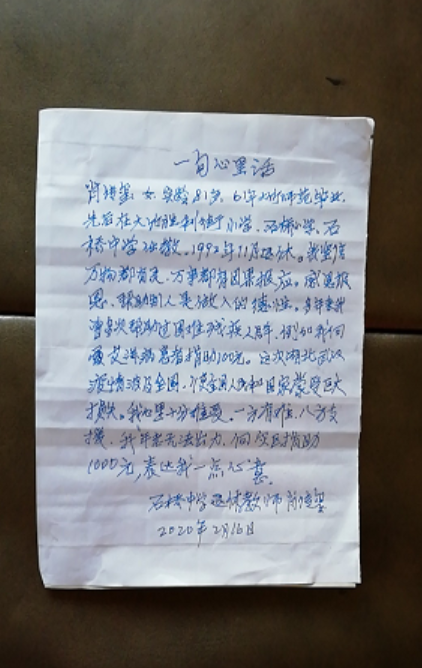 一句心里话
肖 女 实龄81岁、61年 师范毕业
先后在大 胜利街小学、石桥小学、石
桥中学任教。1992年11月退休。我坚信
万物都有灵、万事都有因果报应。感恩报
恩、帮助别人是做人的德性。多年来我
曾多次帮助过困难残疾人 例如我们
艾滋病患者捐助100元。这次湖北武汉
疫情波及全国，使全国人民和国家蒙受巨大
损失。我心里十分难受。一方有难、八方支
援、我年老无法出力、向灾区捐助
1000元，表达我一点心意。
石桥中学退休教师 肖
2020年2月16日